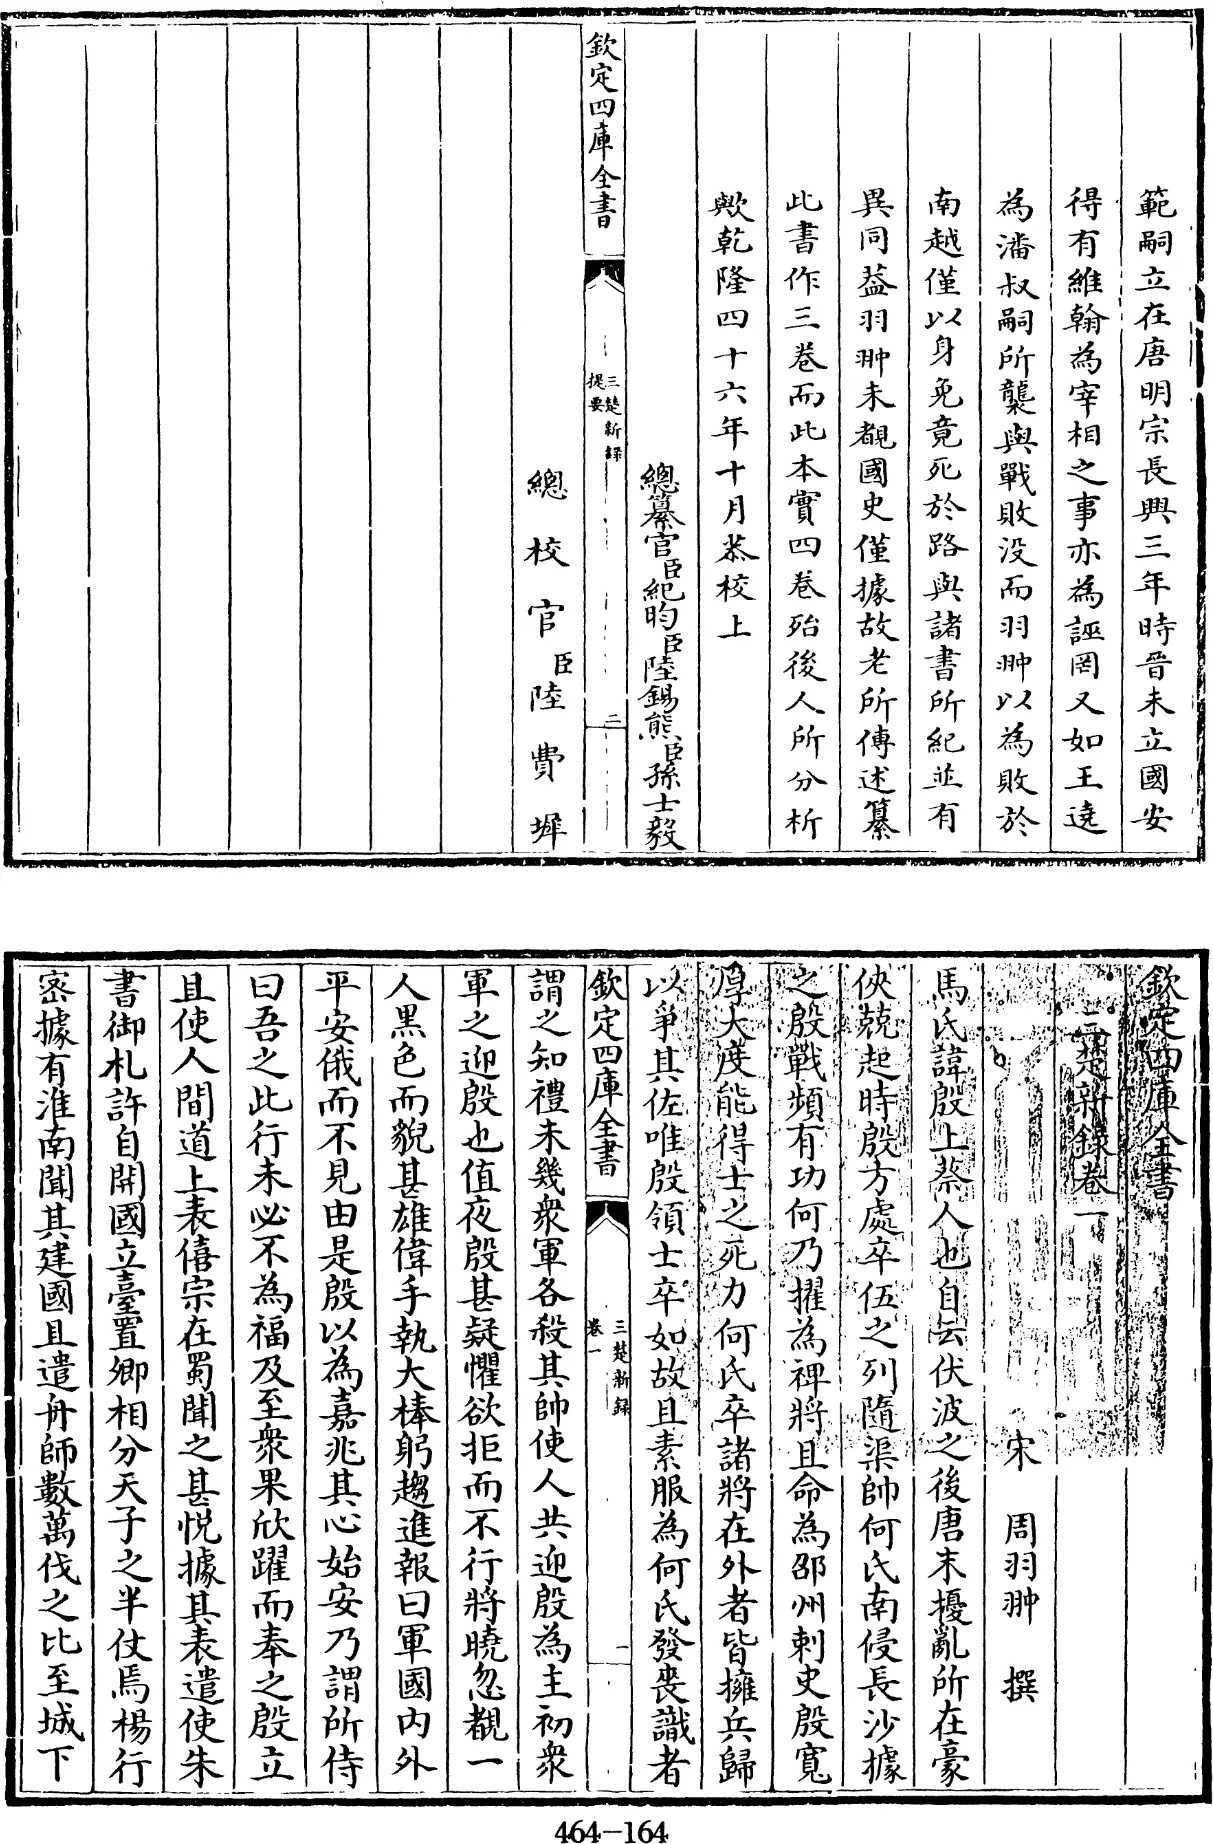 範嗣立在唐明宗長興三年時晉未立國安
得有維翰為宰相之事亦為誣罔又如王逵
為潘叔嗣所襲與戰敗没而羽翀以為敗於
南越僅以身免竟死於路與諸書所紀並有
異同葢羽翀未覩國史僅據故老所傳述纂
此書作三卷而此本實四卷殆後人所分析
歟乾隆四十六年十月恭校上
總纂官臣紀昀臣陸錫熊臣孫士毅
欽定四庫全書
三楚新録
提要
二
總校官臣陸費墀
欽定四庫全書
三楚新録卷一
宋 周羽翀 撰
馬氏諱殷上蔡人也自云伏波之後唐末擾亂所在豪
俠兢起時殷方處卒伍之列隨渠帥何氏南侵長沙據
之殷戰頻有功何乃擢為禆將且命為邵州刺史殷寛
厚大度能得士之死力何氏卒諸將在外者皆擁兵歸
以爭其佐唯殷領士卒如故且素服為何氏發喪識者
欽定四庫全書
三楚新録
卷一
一
謂之知禮未幾衆軍各殺其帥使人共迎殷為主初衆
軍之迎殷也值夜殷甚疑懼欲拒而不行將曉忽覩一
人黒色而貌甚雄偉手執大棒躬趨進報曰軍國内外
平安俄而不見由是殷以為嘉兆其心始安乃謂所侍
曰吾之此行未必不為福及至衆果欣躍而奉之殷立
且使人間道上表僖宗在蜀聞之甚悦據其表遣使朱
書御札許自開國立臺置卿相分天子之半仗焉楊行
密據有淮南聞其建國且遣舟師數萬伐之比至城下
464-164